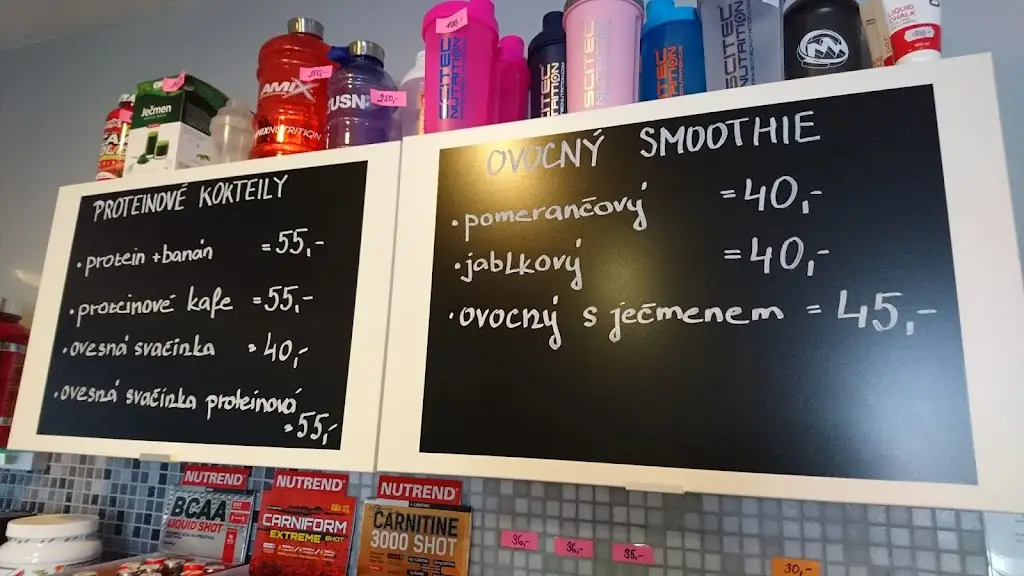 100,-
LIQUID
CHALK
Ječmen
AMIX
AMIXNUTRITION
USN
250,-
SCITEC
NUTRITION
SCITEC
NUTRITION
SCITEC
NUTRITION
SCITEC
NUTRITION
SCITEC
NUTRITION
PROTEINOVÉ KOKTEILY
• protein + banán = 55,-
• proteinové kafe = 55,-
• ovesná svačinka = 40,-
• ovesná svačinka proteinová
= 55,-
OVOCNÝ SMOOTHIE
• pomerančový = 40,-
• jablkový = 40,-
• ovocný s ječmenem = 45,-
NUTREND
BCAA
LIQUID SHOT
NUTREND
CARNIFORM
EXTREME SHOT
NUTREND
CARNITINE
3000 SHOT
36,-
36,-
35,-
30,-